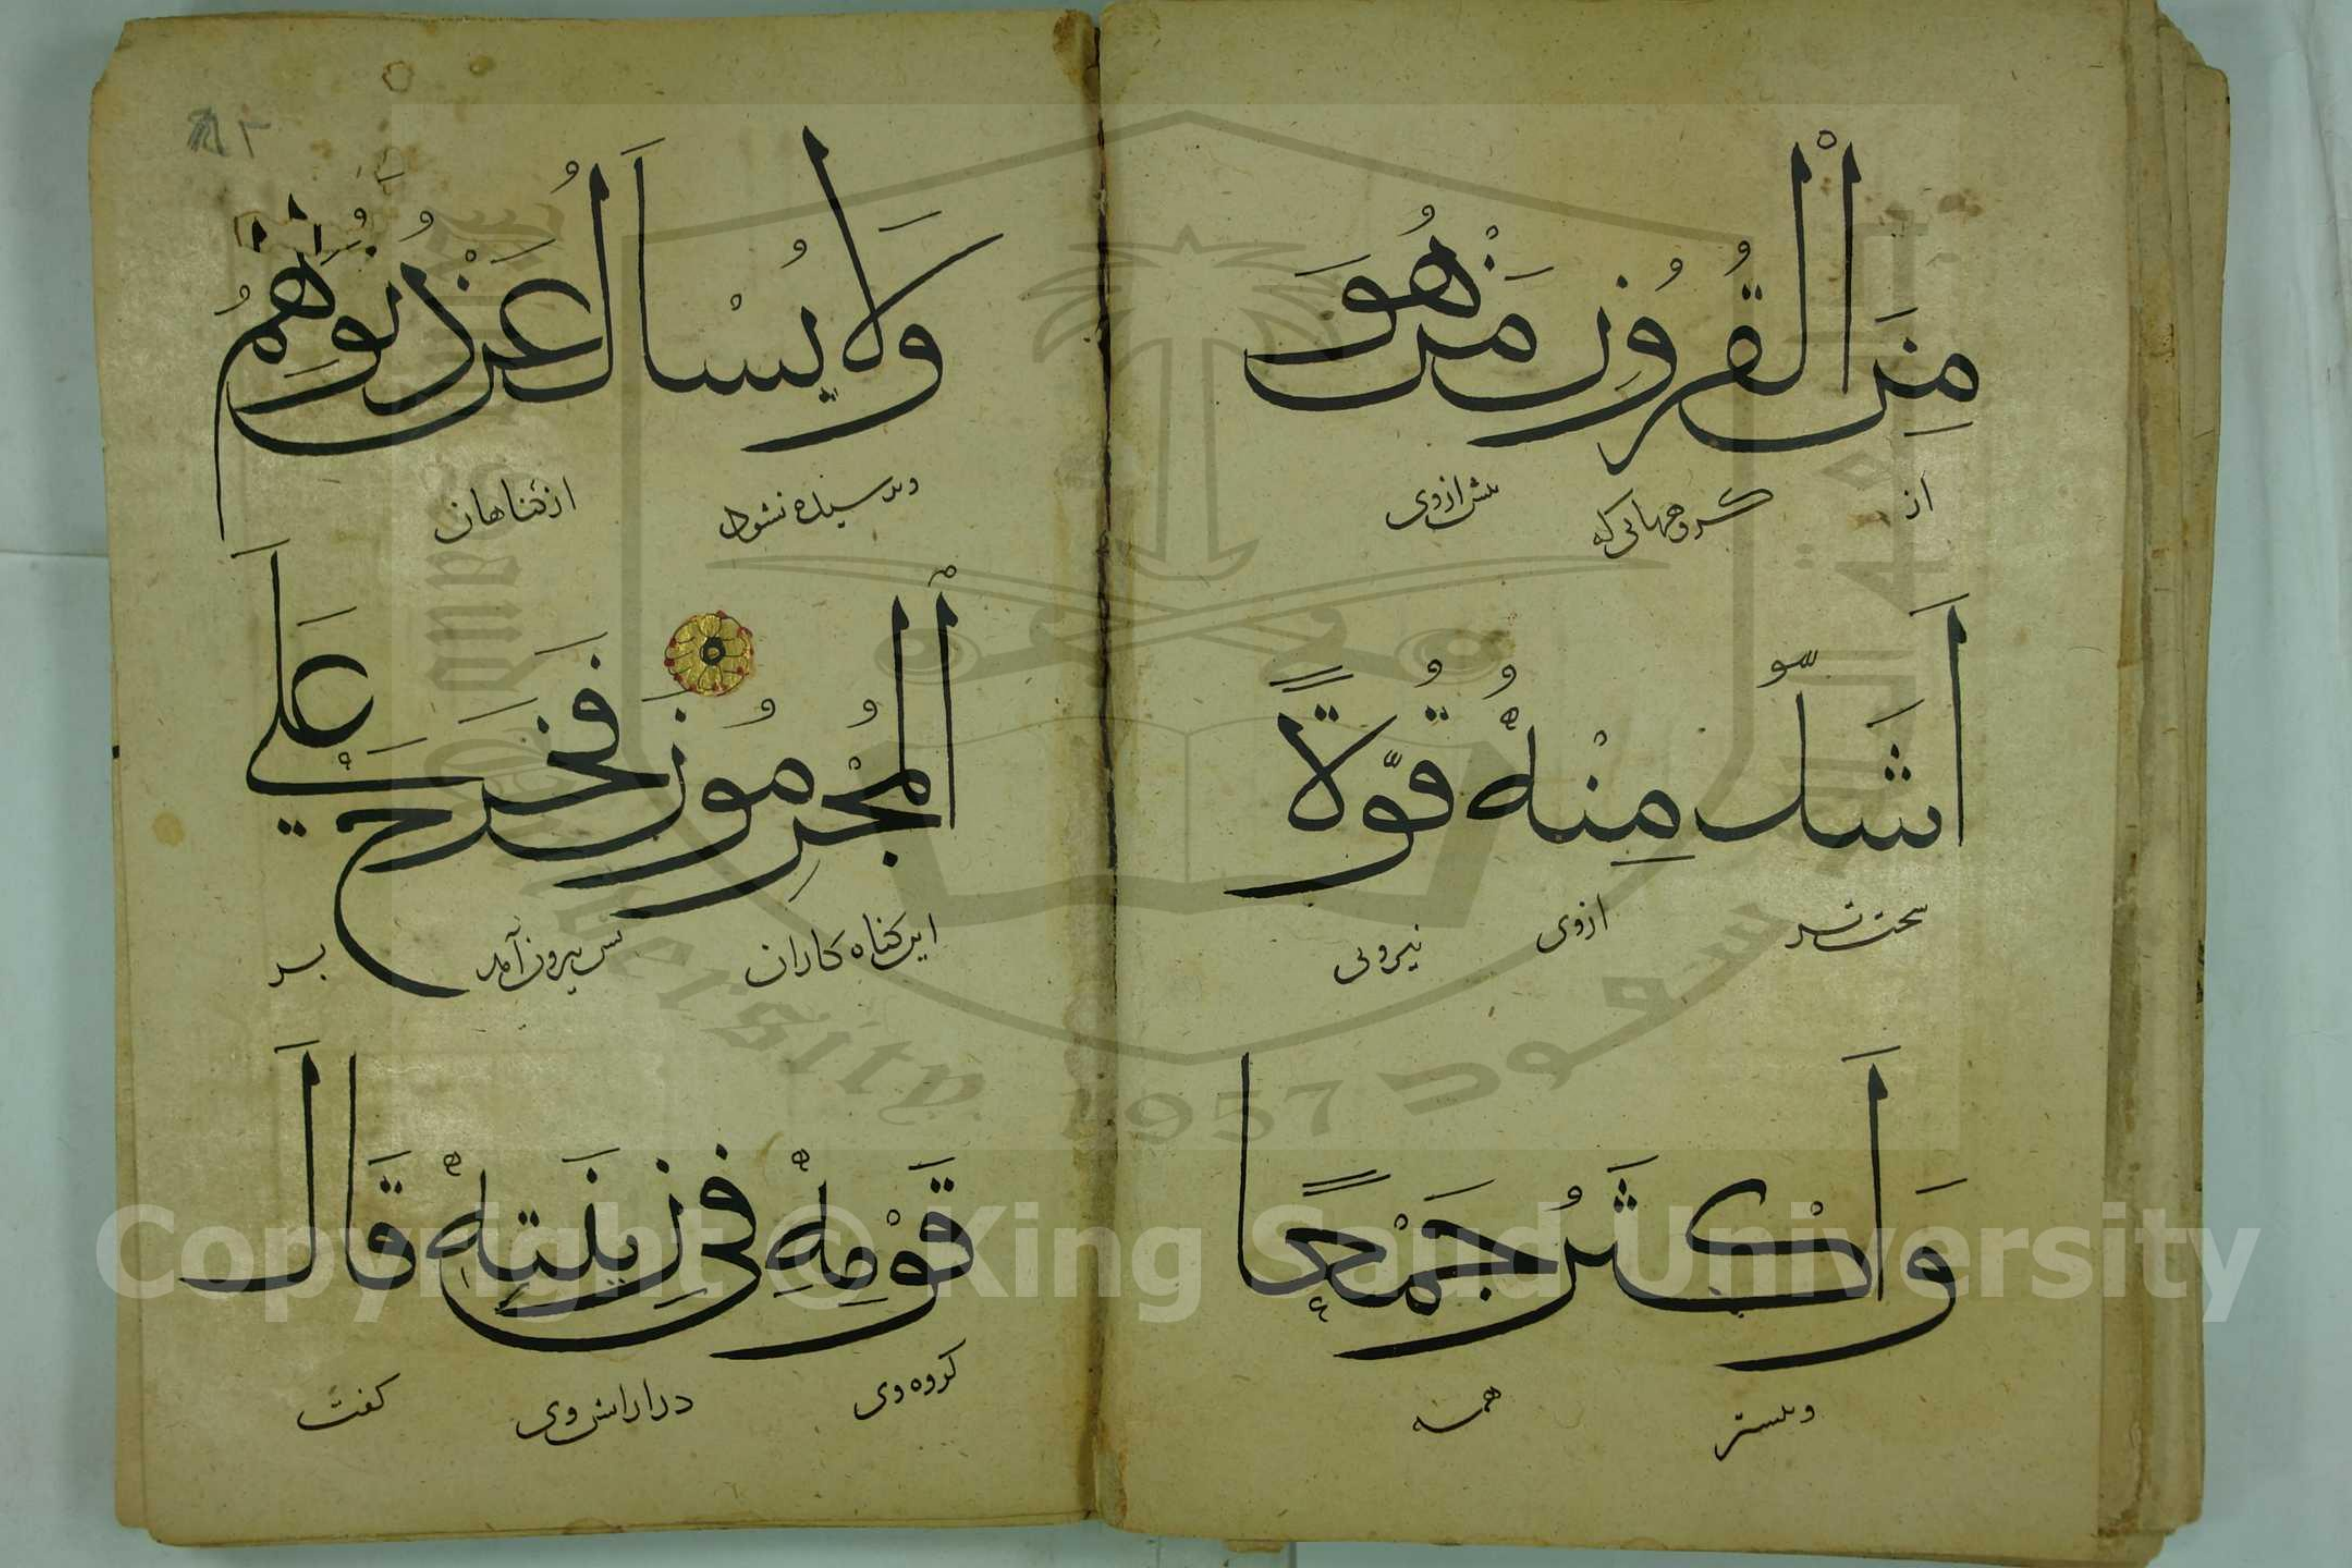 مِنَ الْقُرُونِ مَنْ هُوَ
از گروههایی که پیش ازوی
اَشَدُّ مِنْهُ قُوَّةً
سخت تر ازوی نیرویی
وَاَكْثَرُ جَمْعًا
وبیشتر همه
وَلَا يُسْاَلُ عَنْ ذُنُوبِهِمُ
وپرسیده نشود ازگناهان
الْمُجْرِمُونَ فَخَرَجَ عَلٰي
این گناه کاران پس بیرون آمد بر
قَوْمِهٖ فِي زِينَتِهٖ قَالَ
گروه وی در ارایش وی گفت
Copyright © King Saud University
1957